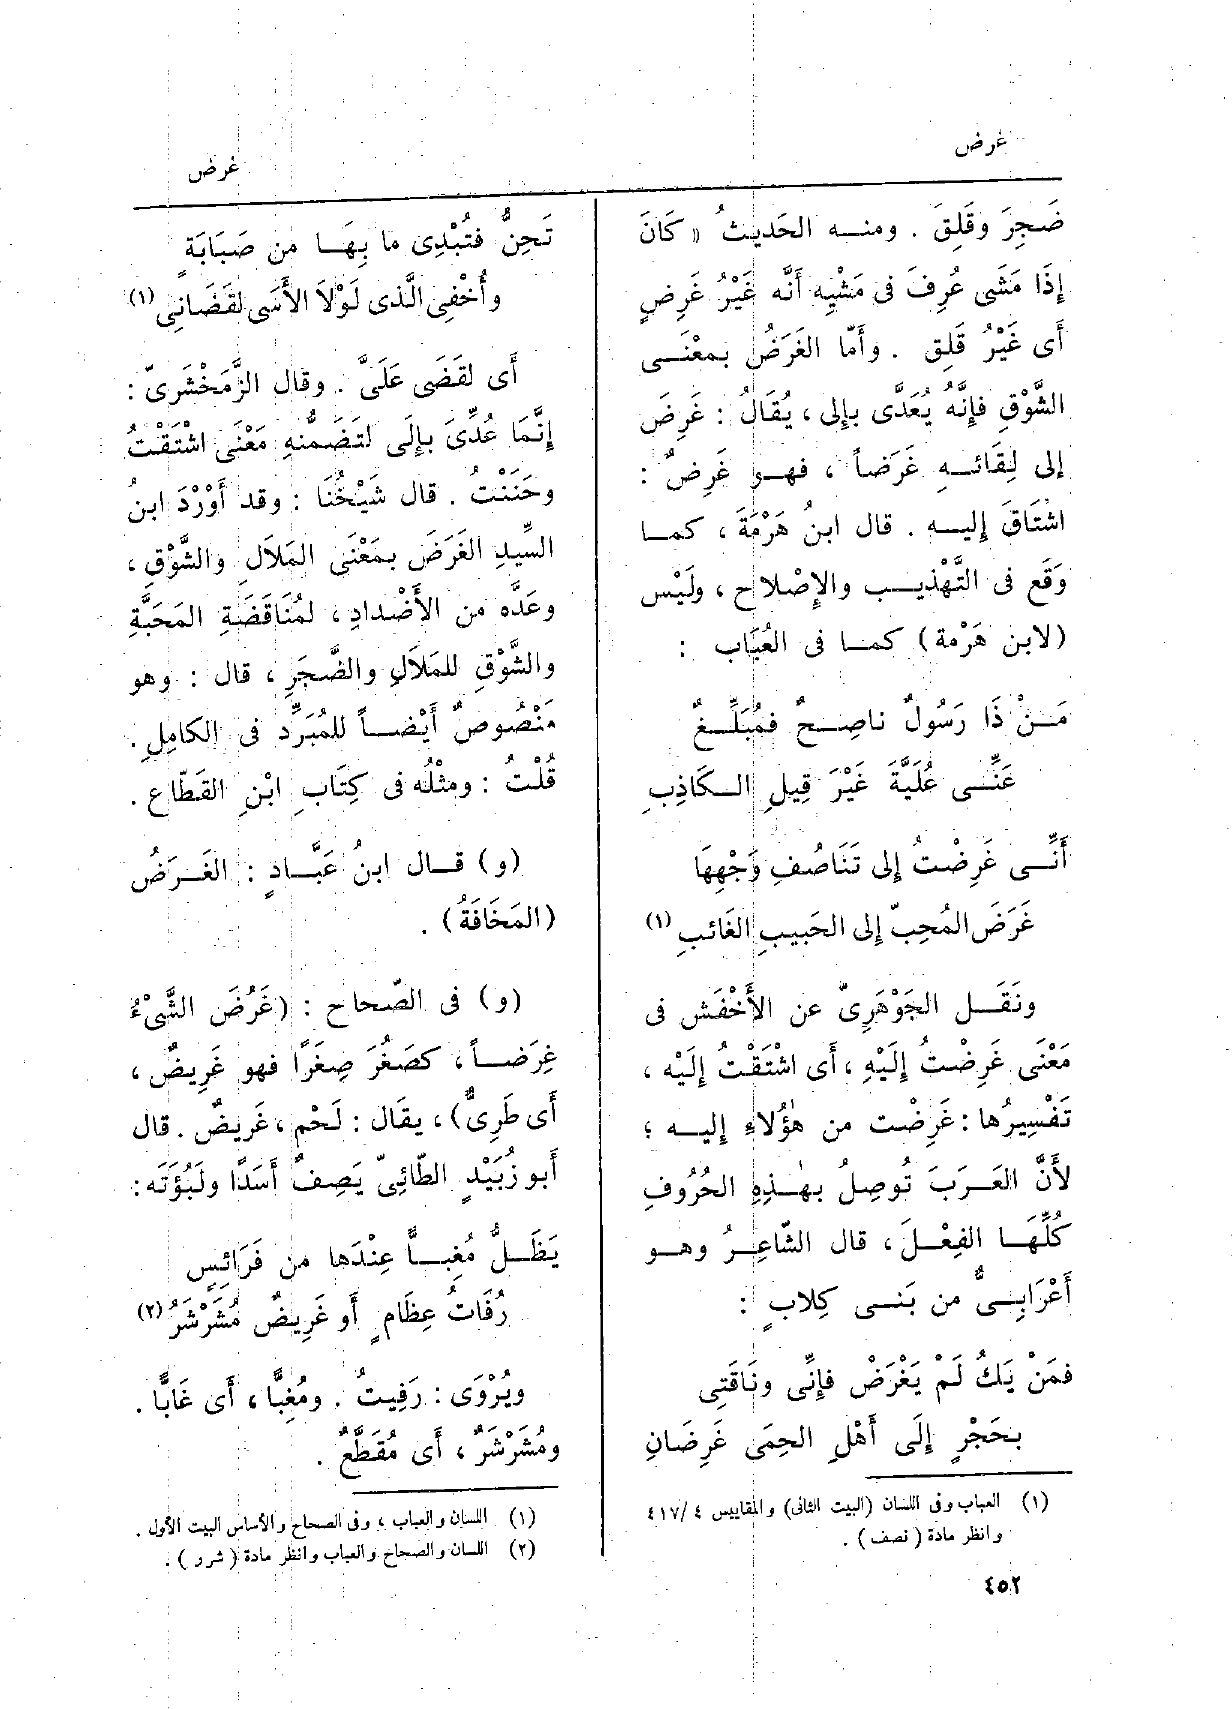 غرض
غرض
ضَجِرَ وقَلِقَ . ومنه الحَديثُ « كَانَ
إِذَا مَشَى عُرِفَ فى مَشْيِه أَنَّه غَيْرُ غَرِضٍ
أَى غَيْرُ قَلِقٍ . وأَمّا الغَرَضُ بمعْنَى
الشَّوْقِ فإِنَّهُ يُعَدَّى بإِلى ، يُقَالُ : غَرِضَ
إِلى لِقَائِهِ غَرَضاً ، فهو غَرِضٌ :
اشْتَاقَ إِليه . قال ابنُ هَرْمَةَ ، كما
وَقَع فى التَّهْذِيب والإِصْلاح ، ولَيْس
(لابن هَرْمة) كما فى العُبَاب :
مَنْ ذَا رَسُولٌ ناصِحٌ فمُبَلِّغٌ
عَنِّى عُلَيَّةَ غَيْرَ قِيلِ الكَاذِبِ
أَنِّى غَرِضْتُ إِلى تَنَاصُفِ وَجْهِهَا
غَرَضَ المُحِبّ إِلى الحَبيبِ الغَائبِ (١)
ونَقَل الجَوْهَرِىّ عن الأَخْفَش فى
مَعْنَى غَرِضْتُ إِلَيْهِ ، أَى اشْتَقْتُ إِلَيْه ،
تَفْسِيرُها : غَرِضْت من هٰؤُلاءِ إِليه ؛
لأَنَّ العَرَبَ تُوصِلُ بهٰذِهِ الحُرُوفِ
كُلِّهَا الفِعْلَ ، قال الشّاعِرُ وهو
أَعْرَابِىٌّ من بَنى كِلابٍ :
فمَنْ يَكُ لَمْ يَغْرَضْ فإِنِّى ونَاقَتِى
بحَجْرٍ إِلَى أَهْلِ الحِمَى غَرِضَانِ
(١) العباب وفى اللسان (البيت الثانى) والمقاييس ٤ /٤١٧
وانظر مادة ( نصف ) .
٤٥٢
تَحِنُّ فتُبْدِى ما بِهَا من صَبَابَةٍ
وأُخْفِى الَّذى لَوْلاَ الأَسَى لقَضَانِى (١)
أَى لقَضَى عَلَىَّ . وقال الزَّمَخْشَرىّ :
إِنَّمَا عُدِّىَ بإِلَى لتَضَمُّنهِ مَعْنَى اشْتَقْتُ
وحَنَنْتُ . قال شَيْخُنَا : وقد أَوْرَدَ ابنُ
السِّيدِ الغَرَضَ بمَعْنَى المَلاَلِ والشَّوْقِ ،
وعَدَّه من الأَضْدادِ ، لمُنَاقَضَةِ المَحَبَّةِ
والشَّوْقِ للمَلاَلِ والضَّجَرِ ، قال : وهو
مَنْصُوصٌ أَيْضاً للمُبَرِّد فى الكامِلِ .
قُلْتُ : ومثْلُه فى كِتَابِ ابْنِ القَطّاع .
(و) قال ابنُ عَبَّادٍ : الغَرَضُ
(المَخَافَةُ) .
(و) فى الصّحاح : (غَرُضَ الشَّىْءُ
غِرَضاً ، كصَغُرَ صِغَرًا فهو غَرِيضٌ ،
أَى طَرِىٌّ) ، يقَال : لَحْم ، غَريضٌ . قال
أَبو زُبَيْدٍ الطّائِىّ يَصِفُ أَسَدًا ولَبُؤَتَه:
يَظَلُّ مُغِبًّا عِنْدَها من فَرَائِسٍ
رُفَاتُ عِظَامٍ أَو غَرِيضٌ مُشَرْشَرُ (٢)
ويُرْوَى : رَفِيتُ . ومُغِبًّا ، أَى غَابًّا .
ومُشَرْشَرٌ ، أَى مُقَطَّعٌ .
(١) اللسان والعباب ، وفى الصحاح والأساس البيت الأول .
(٢) اللسان والصحاح والعباب وانظر مادة ( شرر ) .